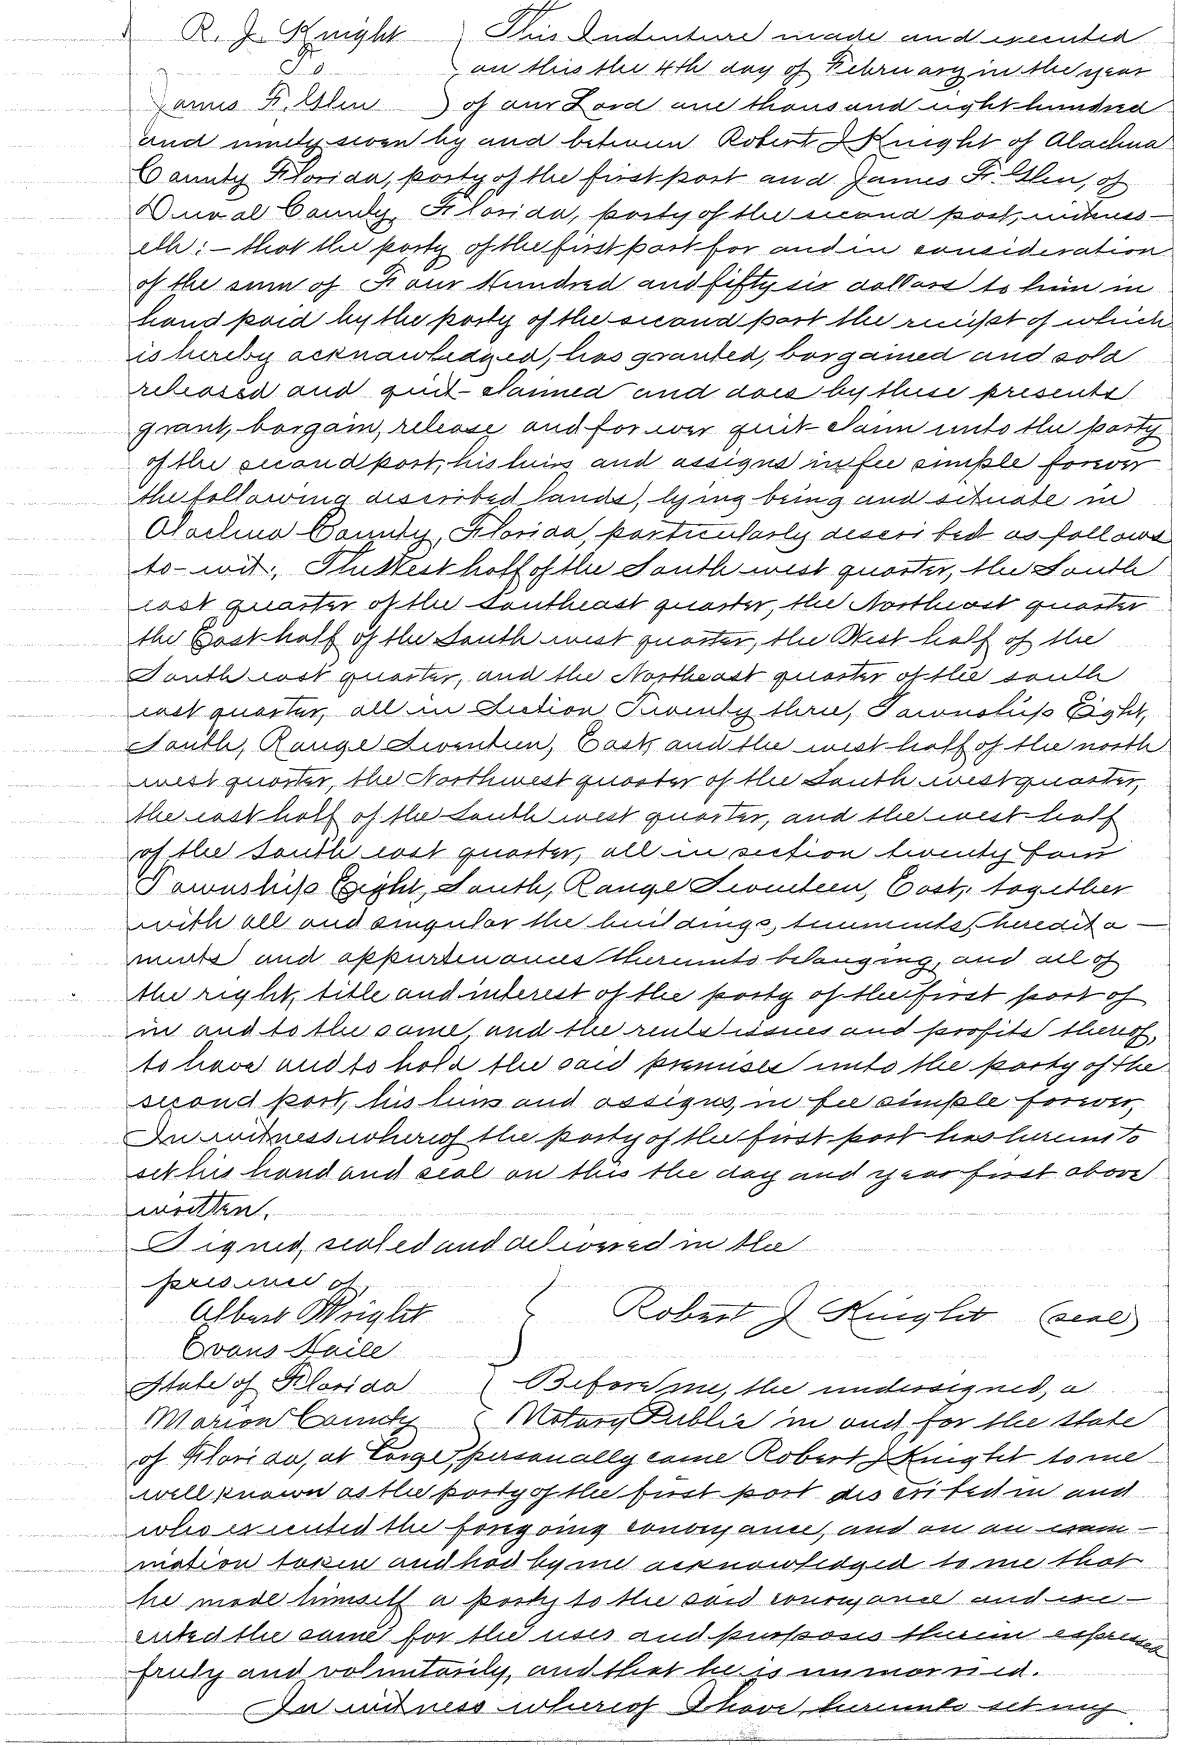 R. J. Knight } This Indenture made and executed
To } on this the 4th day of February in the year
James F. Glen } of our Lord one thousand eight hundred
and ninety seven by and between Robert J Knight of Alachua
County Florida, party of the first part and James F. Glen, of
Duval County, Florida, party of the second part, witness-
eth:- that the party of the first part for and in consideration
of the sum of Four Hundred and fifty six dollars to him in
hand paid by the party of the second part the reciept of which
is hereby acknowledged, has granted, bargained and sold
released and quit-claimed and does by these presents
grant, bargain, release and forever quit-claim unto the party
of the second part, his heirs and assigns in fee simple forever
the following described lands, lying being and situate in
Alachua County, Florida, particularly described as follows
to-wit; The West half of the South west quarter, the South
east quarter of the Southeast quarter, the Northeast quarter
the East half of the South west quarter, the West half of the
South east quarter, and the Northeast quarter of the south
east quarter, all in Section Twenty three, Township Eight,
South, Range Seventeen, East, and the west half of the north
west quarter, the Northwest quarter of the South west quarter,
the east half of the South west quarter, and the west half
of the South east quarter, all in section twenty four
Township Eight, South, Range Seventeen, East, together
with all and singular the buildings, tenements, heredita-
ments and appurtenances thereunto belonging, and all of
the right, title and interest of the party of the first part of
in and to the same, and the rents issues and profits thereof,
to have and to hold the said premises unto the party of the
second part, his heirs and assigns, in fee simple forever,
In witness whereof the party of the first part has hereunto
set his hand and seal on this the day and year first above
written.
Signed, sealed and delivered in the
presence of
Albert Wright } Robert J Knight (seal)
Evans Haile
State of Florida } Before me, the undersigned, a
Marion County } Notary Public in and for the state
of Florida, at Large, personally came Robert J Knight to me
well known as the party of the first part described in and
who executed the foregoing conveyance, and on an exam-
ination taken and had by me acknowledged to me that
he made himself a party to the said conveyance and exe-
cuted the same for the uses and purposes therein expressed
freely and voluntarily, and that he is unmarried.
In witness whereof I have hereunto set my